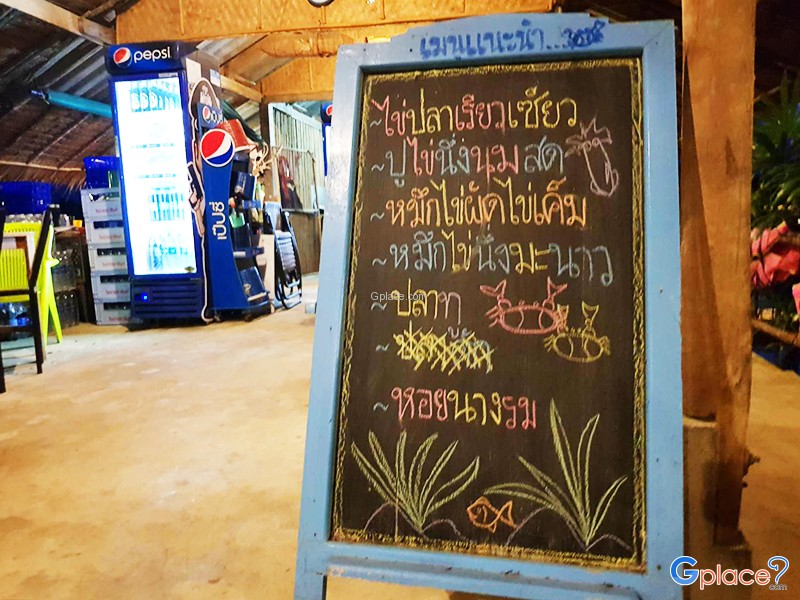 เมนูแนะนำ...
pepsi
~ไข่ปลาเรียวเซียว
~ปูไข่นึ่งนมสด
~หมึกไข่ผัดไข่เค็ม
~หมึกไข่นึ่งมะนาว
~ปลาทู
~หอยนางรม
เป๊ปซี่
Gplace.com
Gplace?.com